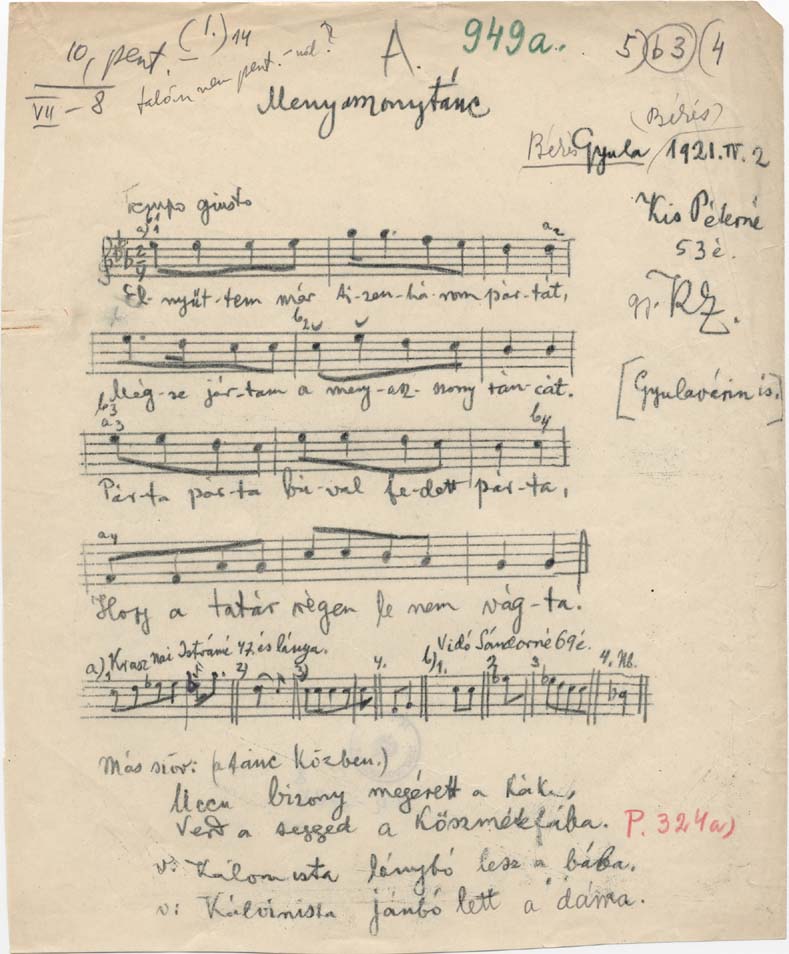 10, pent. (1.) 14
A.
949a.
5) b3 (4
VII - 8
talán nem pent.-nál?
Menyasszonytánc
(Békés)
Békés Gyula / 1921. IV. 2
Tempo giusto
Kis Péterné
53 é.
gy. KZ.
[Gyulavárin is.]
a) b1 1
a2
2/4
El-nyűt-tem már ti-zen-há-rom pár-tát,
b2
Még-se jár-tam a meny-asz-szony tán-cát.
b3
a3
b4
Pár-ta pár-ta bú-val fe-dett pár-ta,
a4
Hogy a tatár régen le nem vág-ta!
a) Krasznai Istváné 47. és lánya.
b) Vidó Sándorné 69 é.
1. 2) 3) 4. 1. 2 3 4. Nb.
Más szöv: (a tánc közben.)
Uccu bizony megérett a
Verd a segged a Köszmékfába. P. 324a)
v: Kálomista lánybó lesz a bába.
v: Kálvinista jánbó lett a dáma.